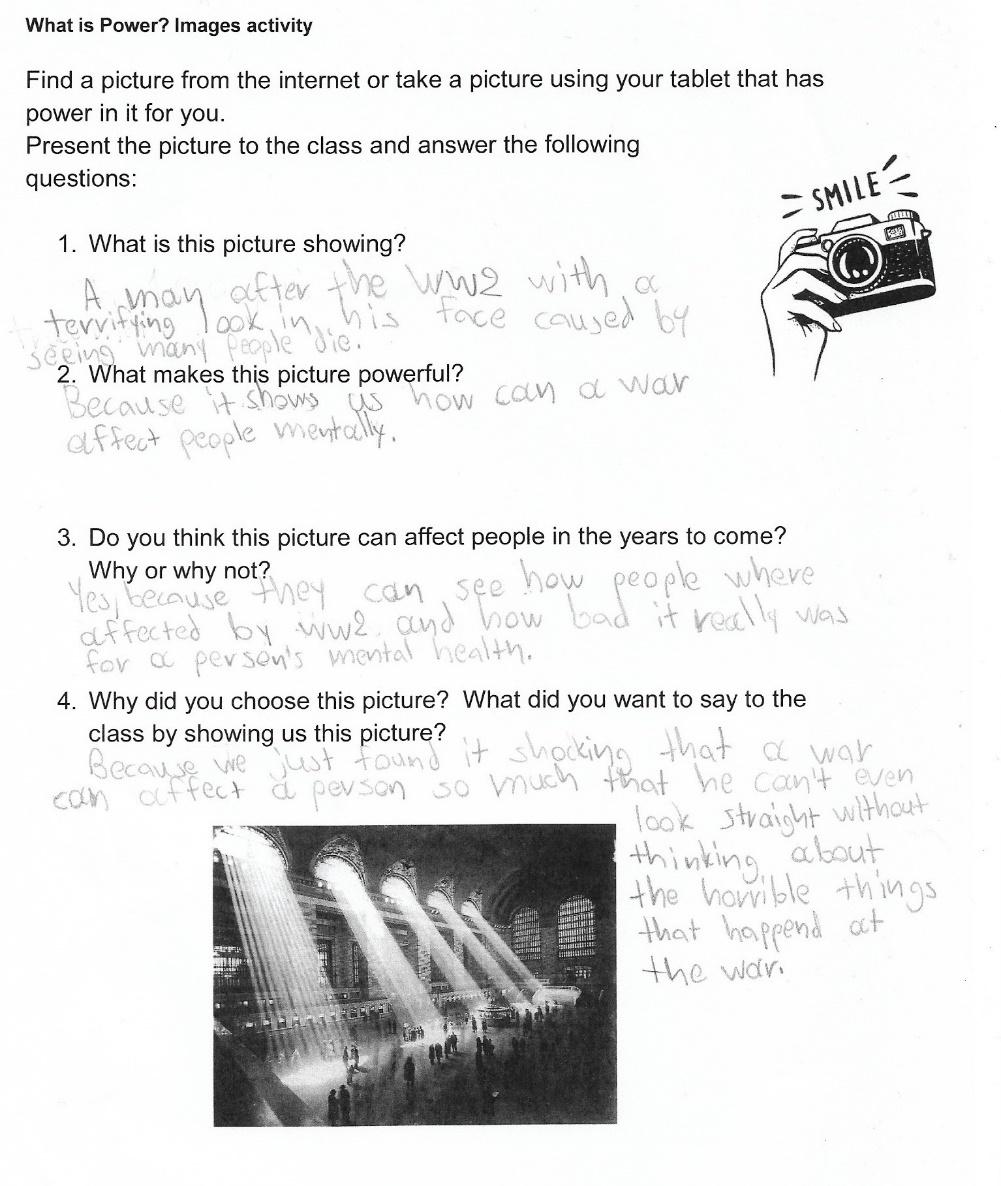 What is Power? Images activity
Find a picture from the internet or take a picture using your tablet that has
power in it for you.
Present the picture to the class and answer the following
questions:
SMILE
1. What is this picture showing?
A man after the WW2 with a
terrifying look in his face caused by
seeing many people die.
2. What makes this picture powerful?
Because it shows us how can a war
affect people mentally.
3. Do you think this picture can affect people in the years to come?
Why or why not?
Yes, because they can see how people where
affected by ww2 and how bad it really was
for a person's mental health.
4. Why did you choose this picture? What did you want to say to the
class by showing us this picture?
Because we just found it shocking that a war
can affect a person so much that he can't even
look straight without
thinking about
the horrible things
that happend at
the war.